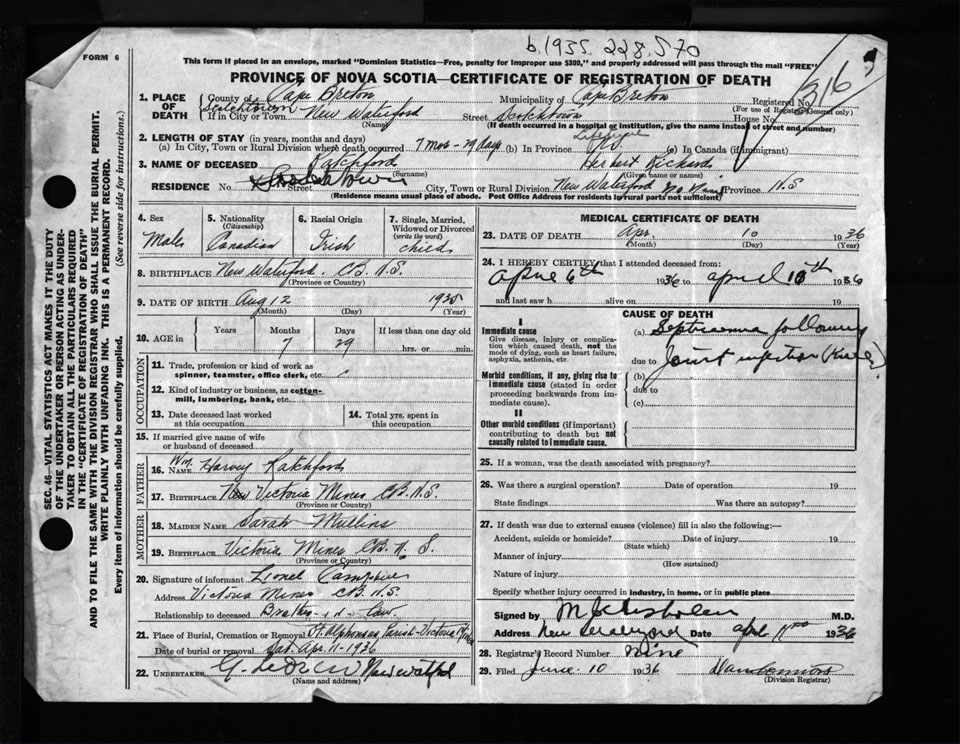 b.1935. 228.570
FORM 6
This form if placed in an envelope, marked "Dominion Statistics—Free, penalty for improper use $300," and properly addressed will pass through the mail "FREE"
PROVINCE OF NOVA SCOTIA—CERTIFICATE OF REGISTRATION OF DEATH
1. PLACE OF DEATH
County of Cape Breton Municipality of Cape Breton Registered No.
(For use of Registrar General only)
316
Scotchtown
If in City or Town New Waterford Street Scotchtown House No.
(Name) (If death occurred in a hospital or institution, give the name instead of street and number)
2. LENGTH OF STAY (in years, months and days)
Lifetime
(a) In City, Town or Rural Division where death occurred 7 mos - 29 days (b) In Province (c) In Canada (if immigrant)
3. NAME OF DECEASED Ratchford Herbert Richard
(Surname) (Given name or names)
RESIDENCE No. Scotchtown Street City, Town or Rural Division New Waterford Province N.S
(Residence means usual place of abode. Post Office Address for residents in rural parts not sufficient)
4. Sex Male
5. Nationality (Citizenship) Canadian
6. Racial Origin Irish
7. Single, Married, Widowed or Divorced (write the word) child
8. BIRTHPLACE New Waterford. C.B. N.S.
(Province or Country)
9. DATE OF BIRTH Aug 12 1935
(Month) (Day) (Year)
10. AGE in Years Months Days If less than one day old
7 29 hrs. or min.
OCCUPATION
11. Trade, profession or kind of work as spinner, teamster, office clerk, etc.
12. Kind of industry or business, as cotton-mill, lumbering, bank, etc.
13. Date deceased last worked at this occupation
14. Total yrs. spent in this occupation
15. If married give name of wife or husband of deceased
FATHER
16. NAME Wm. Harvey Ratchford
17. BIRTHPLACE New Victoria Mines C.B. N.S.
(Province or Country)
MOTHER
18. MAIDEN NAME Sarah Mullins
19. BIRTHPLACE Victoria Mines C.B. N. S.
(Province or Country)
20. Signature of informant Lionel
Address Victoria Mines C.B. N.S
Relationship to deceased Brother-in-Law.
21. Place of Burial, Cremation or Removal St. Alphonsus Parish - Victoria Mines
Date of burial or removal Sat. Apr. 11 - 1936
22. UNDERTAKER
(Name and address)
MEDICAL CERTIFICATE OF DEATH
23. DATE OF DEATH Apr. 10 1936
(Month) (Day) (Year)
24. I HEREBY CERTIFY that I attended deceased from:
April 6th 1936 to April 10th 1936
and last saw h alive on 19
CAUSE OF DEATH
I
Immediate cause
Give disease, injury or complication which caused death, not the mode of dying, such as heart failure, asphyxia, asthenia, etc.
(a) Septicaemia following
due to Joint infection (Knee).
Morbid conditions, if any, giving rise to immediate cause (stated in order proceeding backwards from immediate cause).
(b)
due to
(c)
II
Other morbid conditions (if important) contributing to death but not causally related to immediate cause.
25. If a woman, was the death associated with pregnancy?
26. Was there a surgical operation? Date of operation 19
State findings Was there an autopsy?
27. If death was due to external causes (violence) fill in also the following:—
Accident, suicide or homicide? Date of injury 19
(State which)
Manner of injury
(How sustained)
Nature of injury
Specify whether injury occurred in industry, in home, or in public place
Signed by M.D.
Address New Waterford Date April 11th 1936
28. Registrar's Record Number nine
29. Filed June 10 1936
(Division Registrar)
SEC. 46—VITAL STATISTICS ACT MAKES IT THE DUTY
OF THE UNDERTAKER OR PERSON ACTING AS UNDER-
TAKER TO OBTAIN ALL THE PARTICULARS REQUIRED
IN THE "CERTIFICATE OF REGISTRATION OF DEATH"
AND TO FILE THE SAME WITH THE DIVISION REGISTRAR WHO SHALL ISSUE THE BURIAL PERMIT.
WRITE PLAINLY WITH UNFADING INK. THIS IS A PERMANENT RECORD.
Every item of information should be carefully supplied. (See reverse side for instructions.)